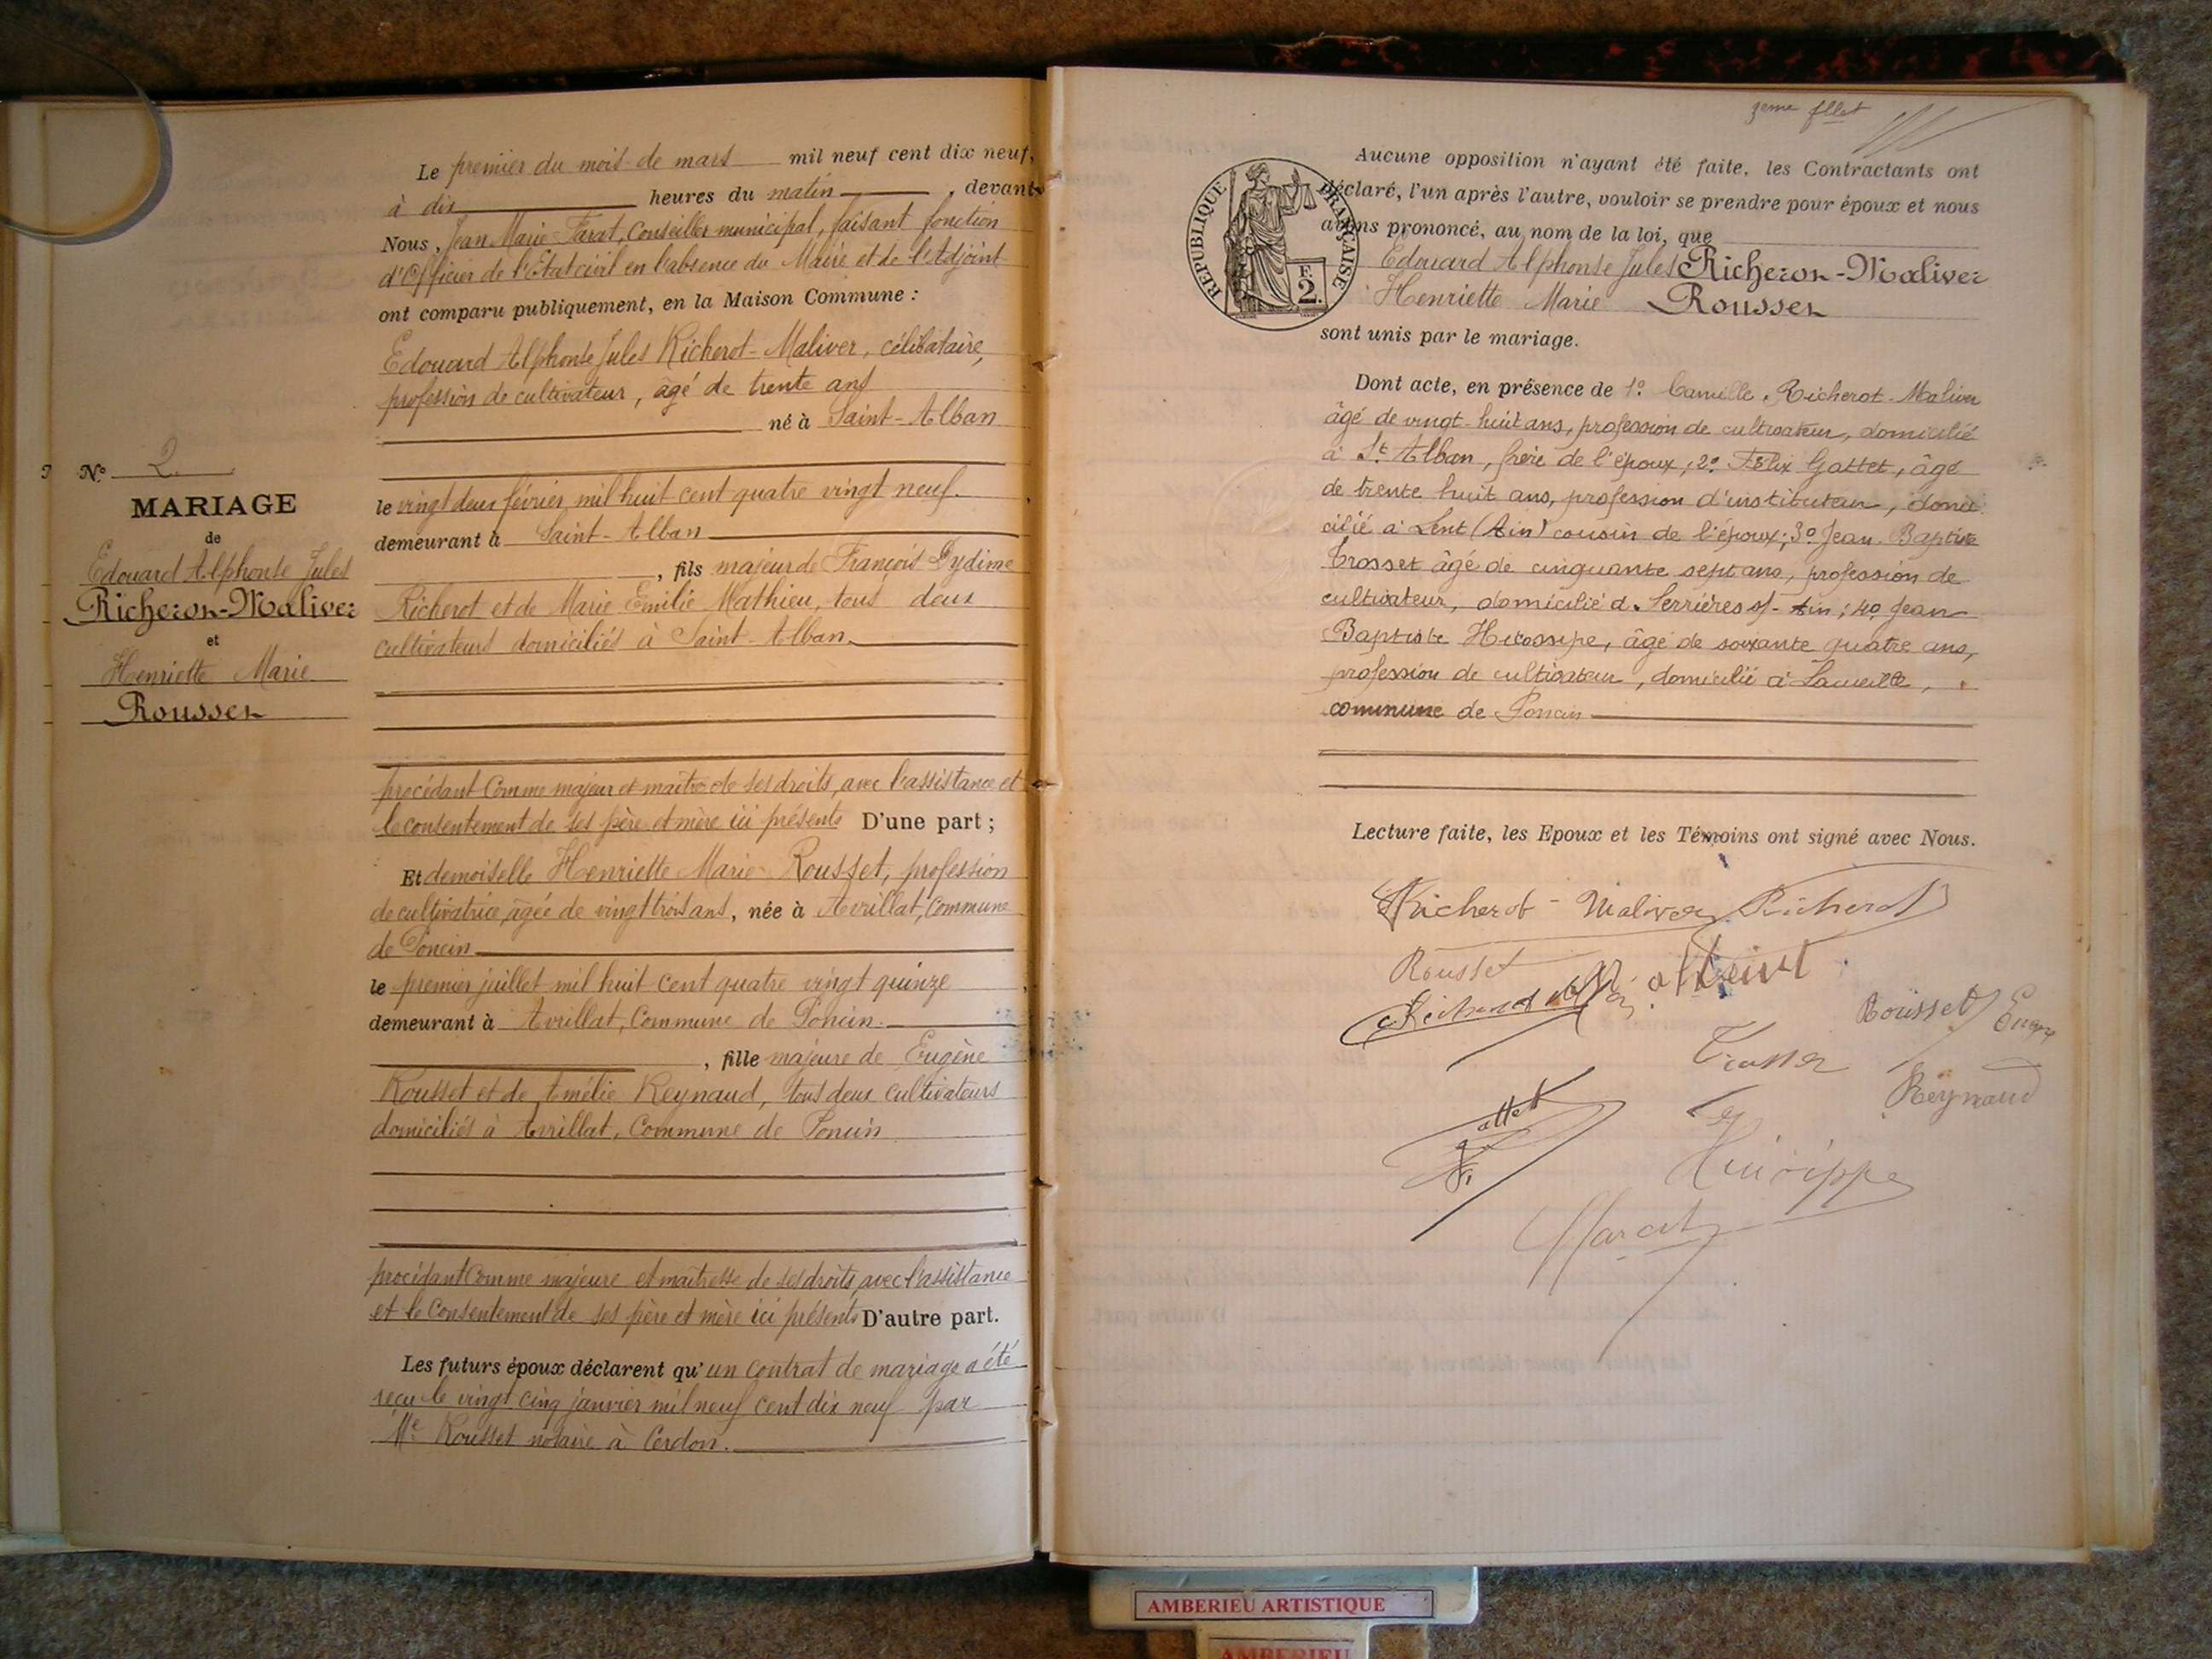 Le premier du mois de mars mil neuf cent dix neuf,
à dix heures du matin, devant
Nous, Jean Marie Farat, Conseiller municipal, faisant fonction
d'Officier de l'Etat civil en l'absence du Maire et de l'Adjoint
ont comparu publiquement, en la Maison Commune :
Edouard Alphonse Jules Richerot-Maliver, célibataire,
profession de cultivateur, âgé de trente ans
né à Saint-Alban
le vingt deux février mil huit cent quatre vingt neuf.
demeurant à Saint-Alban
, fils majeur de François Dydime
Richerot et de Marie Emilie Mathieu, tous deux
cultivateurs domiciliés à Saint-Alban.
procédant comme majeur et maître de ses droits, avec l'assistance et
le consentement de ses père et mère ici présents D'une part ;
Et demoiselle Henriette Marie Rousset, profession
de cultivatrice, âgée de vingt trois ans, née à Avrillat, Commune
de Poncin
le premier juillet mil huit cent quatre vingt quinze
demeurant à Avrillat, Commune de Poncin.
, fille majeure de Eugène
Rousset et de Amélie Reynaud, tous deux cultivateurs
domiciliés à Avrillat, Commune de Poncin
procédant comme majeure et maîtresse de ses droits, avec l'assistance
et le consentement de ses père et mère ici présents D'autre part.
Les futurs époux déclarent qu'un contrat de mariage a été
reçu le vingt cinq janvier mil neuf cent dix neuf par
Me Rousset notaire à Cerdon.
N° 2
MARIAGE
de
Edouard Alphonse Jules
Richerot-Maliver
et
Henriette Marie
Rousset
3eme fllet
REPUBLIQUE FRANÇAISE
F.
2.
Aucune opposition n'ayant été faite, les Contractants ont
déclaré, l'un après l'autre, vouloir se prendre pour époux et nous
avons prononcé, au nom de la loi, que
Edouard Alphonse Jules Richerot-Maliver
Henriette Marie Rousset
sont unis par le mariage.
Dont acte, en présence de 1° Camille Richerot-Maliver
âgé de vingt-huit ans, profession de cultivateur, domicilié
à St Alban, frère de l'époux ; 2° Félix Gattet, âgé
de trente huit ans, profession d'instituteur, domi
cilié à Lent (Ain) cousin de l'époux ; 3° Jean Baptiste
Trosset âgé de cinquante sept ans, profession de
cultivateur, domicilié à Serrières s/- Ain ; 4° Jean
Baptiste âgé de soixante quatre ans,
profession de cultivateur, domicilié à
commune de Poncin
Lecture faite, les Epoux et les Témoins ont signé avec Nous.
Richerot-Maliver Richerot
Rousset
Rousset
Trosset
Reynaud
AMBERIEU ARTISTIQUE
AMBERIEU